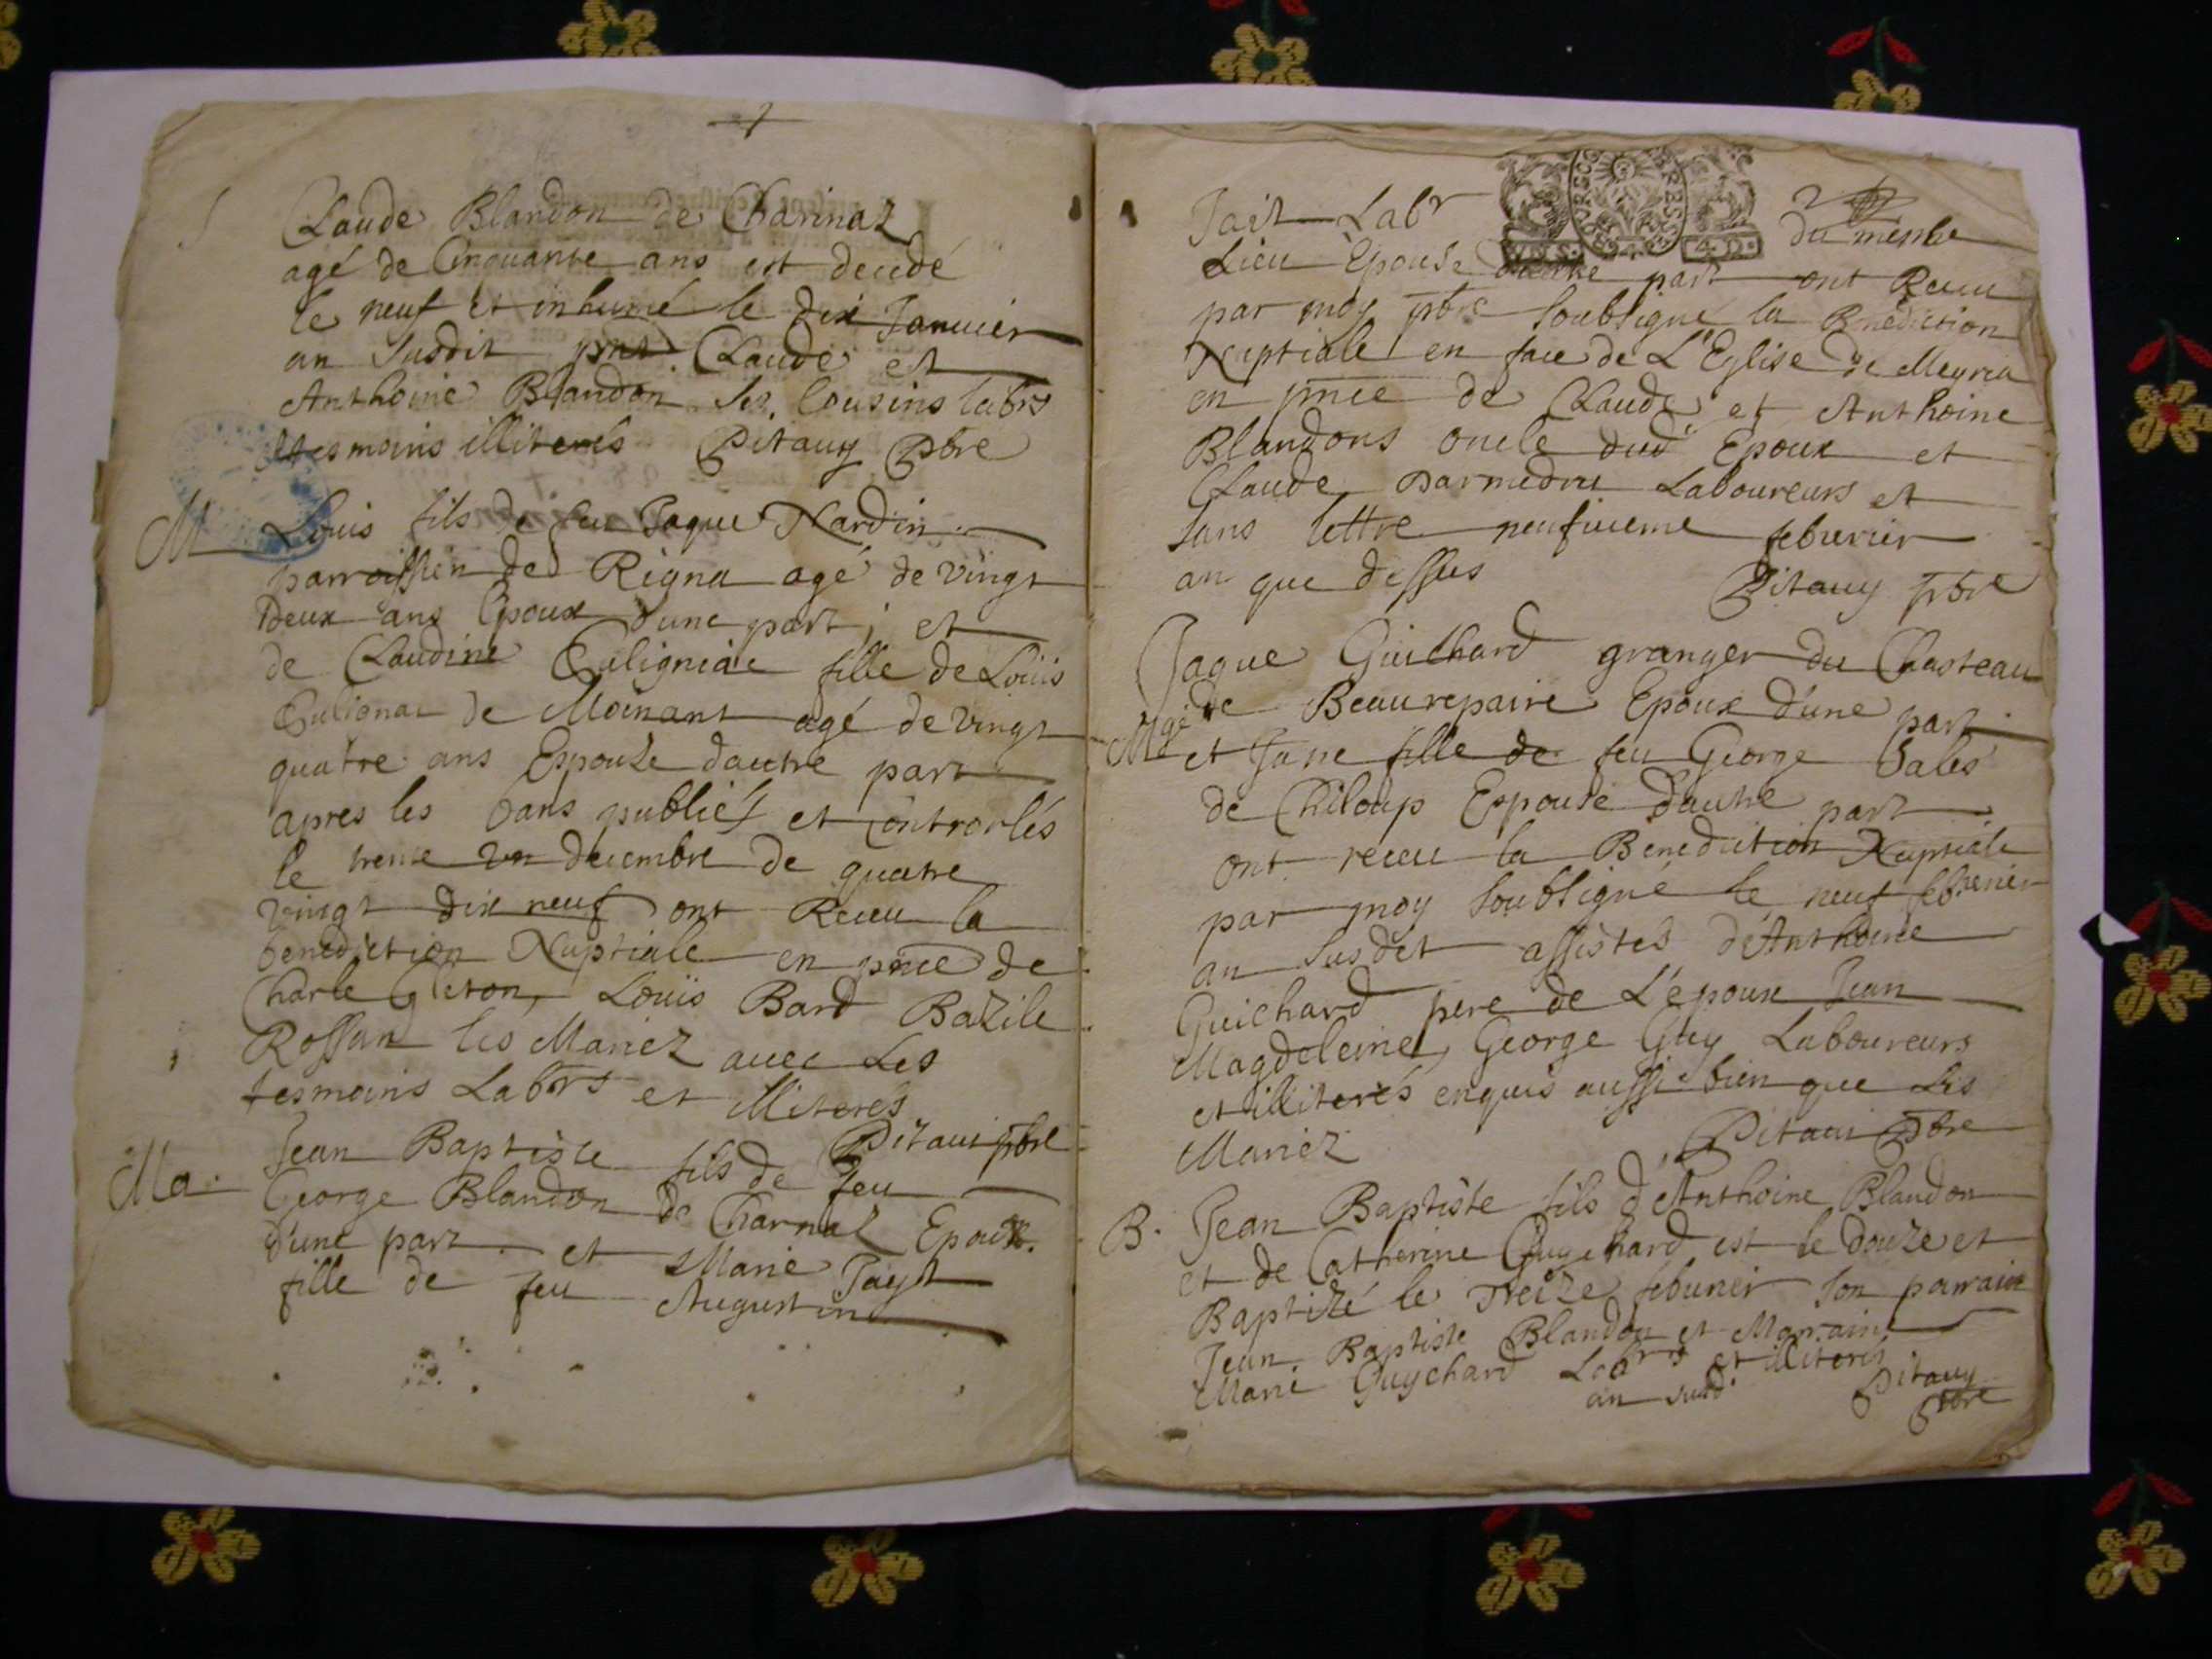 S Claude Blandon de Charinaz
agé de Cinquante ans est decedé
le neuf et inhumé le dix Januier
an susdit pnt Claude et
Anthoine Blandon ses Cousins labrs
tesmoins illiterés Pitauy Pbre
M Louis fils de feu Jaque Nardin
parroissien de Rigna agé de vingt
Deux ans Epoux d'une part; et
de Claudine fille de Louis
de Moinant agé de vingt
quatre ans Espouse dautre part
apres les bans publiés et controrlés
le trente un decembre de quatre
vingt dix neuf ont Receu la
benediction Nuptiale en pnce de
Charle Louis Bard Bazile
Rossan les Mariez auec Les
tesmoins Labrs et illiterés
Pitaui pbre
Ma. Jean Baptiste fils de feu
George Blandon de Charnaz Epoux
d'une part et Marie Jayt
fille de feu Augustin
2
Jait Labr du mesme
Lieu Epouse dautre part ont Receu
par moy pbre soubsigné la Benediction
Nuptiale en face de L'Eglise de Meyria
en pnce de Claude et Anthoine
Blandons oncle dud Epoux et
Claude Laboureurs et
sans lettre neufuieme feburier
an que dessus Pitauy pbre
Jaque Guichard granger du Chasteau
de Beaurepaire Epoux d'une part
Mge et Jane fille de feu George Sales
de Chiloup Espouse dautre part
ont receu la Benediction Nuptiale
par moy soubsigné le neuf febvrier
an susdit assistés d'Anthoine
Guichard pere de L'epoux Jean
Magdeleine, George Guy Laboureurs
et illiterés enquis aussi bien que Les
Mariez Pitaui Pbre
B. Jean Baptiste fils d'Anthoine Blandon
et de Catherine Guychard est le douze et
Baptizé le Treize feburier son parrain
Jean Baptiste Blandon et Marraine
Marie Guychard Labrs et illiterés
an susd. Pitauy
Pbre